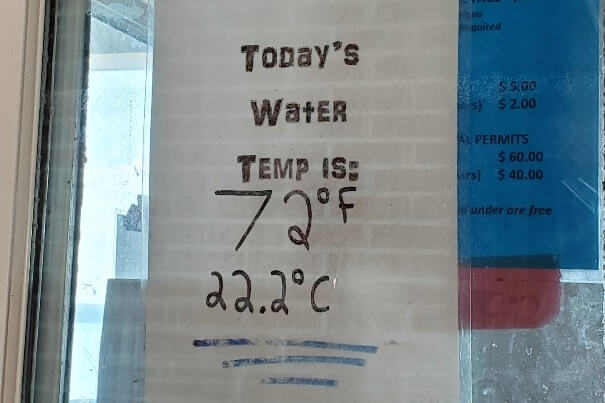 Today's
Water
Temp is:
72°F
22.2°C
Required
$5.00
$2.00
PERMITS
$60.00
$40.00
under are free